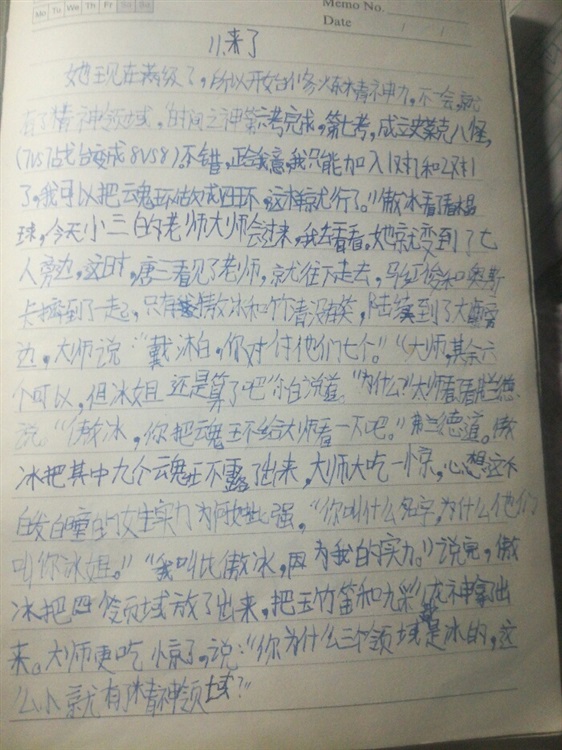 Mo Tu We Th Fr Sa Su
Memo No.
Date / /
11.来了
她现在满级了,所以开始修炼精神力,不一会,就
有了精神领域,“时间之神第六考完成,第七考,成立史莱克八怪,
(7VS7战台变成8VS8)。不错,正合我意,我只能加入1对1和2对1
了,我可以把云魂环改成四环,这样就行了。”傲冰看着水晶
球,今天小三的老师大师会过来,我去看看。她就变到了七
人旁边,这时,唐三看见了老师,就往下走去,马红俊和奥斯
卡挤到了一起,只有傲冰和竹清没有笑,陆续到了大师
边,大师说:“戴沐白,你对付他们七个。”“大师,其余六
个可以,但冰姐还是算了吧”小白说道“为什么?”大师看着弗兰德
说“傲冰,你把魂环给大师看一下吧。”弗兰德道。傲
冰把其中九个魂环露了出来,大师大吃一惊,心想这个
白发白瞳的女生实力为何如此强,“你叫什么名字,为什么他们
叫你冰姐。”“我叫比傲冰,因为我的实力。”说完,傲
冰把四个领域放了出来,把玉竹笛和九彩龙神拿出
来。大师更吃惊了,说:“你为什么三个领域是冰的,这
么小就有了精神领域?”